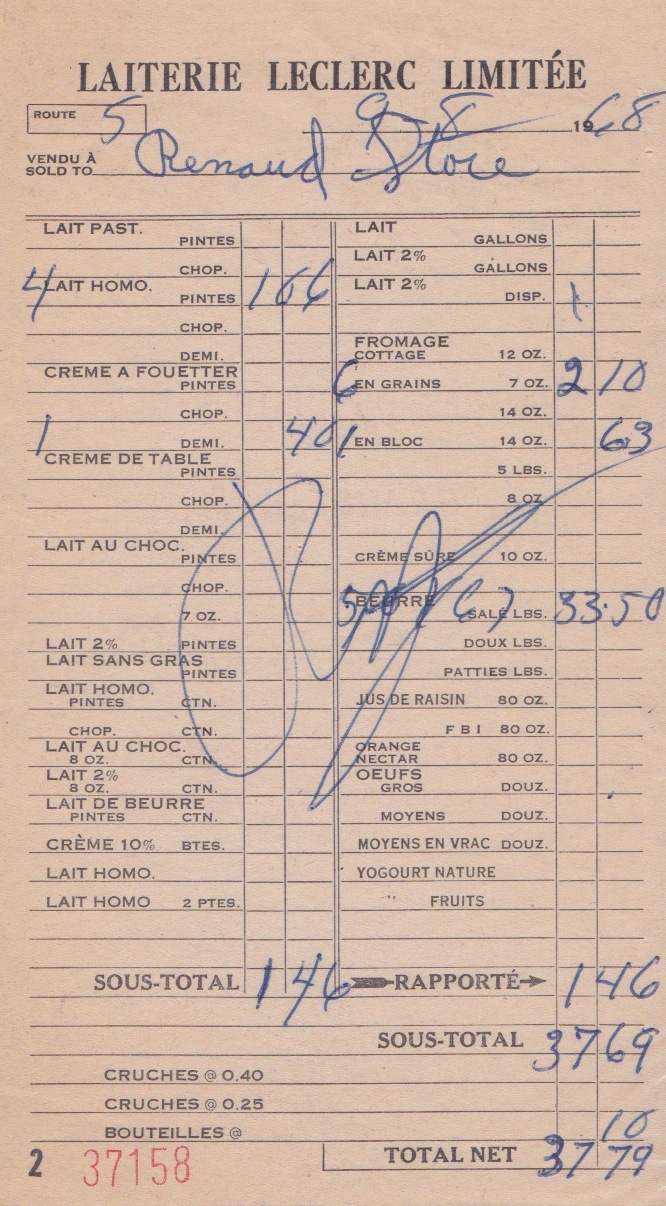 LAITERIE LECLERC LIMITÉE
ROUTE 5 9-8 1968
VENDU À
SOLD TO Renaud Store
LAIT PAST.
PINTES
CHOP.
4 LAIT HOMO.
PINTES 1 06
CHOP.
DEMI.
CREME A FOUETTER
PINTES
CHOP.
1 DEMI. 40
CREME DE TABLE
PINTES
CHOP.
DEMI.
LAIT AU CHOC.
PINTES
CHOP.
7 OZ.
LAIT 2% PINTES
LAIT SANS GRAS
PINTES
LAIT HOMO.
PINTES CTN.
CHOP. CTN.
LAIT AU CHOC.
8 OZ. CTN.
LAIT 2%
8 OZ. CTN.
LAIT DE BEURRE
PINTES CTN.
CRÈME 10% BTES.
LAIT HOMO.
LAIT HOMO 2 PTES.
SOUS-TOTAL 1 46
LAIT
GALLONS
LAIT 2%
GALLONS
LAIT 2%
DISP.
FROMAGE
COTTAGE 12 OZ.
6 EN GRAINS 7 OZ. 2 10
14 OZ.
1 EN BLOC 14 OZ. 63
5 LBS.
8 OZ
CRÈME SÛRE 10 OZ.
BEURRE
SALÉ LBS. 33.50
DOUX LBS.
PATTIES LBS.
JUS DE RAISIN 80 OZ.
F B I 80 OZ.
ORANGE
NECTAR 80 OZ.
OEUFS
GROS DOUZ.
MOYENS DOUZ.
MOYENS EN VRAC DOUZ.
YOGOURT NATURE
" FRUITS
RAPPORTÉ 1 46
SOUS-TOTAL 37 69
CRUCHES @ 0.40
CRUCHES @ 0.25
BOUTEILLES @ 10
2 37158 TOTAL NET 37 79